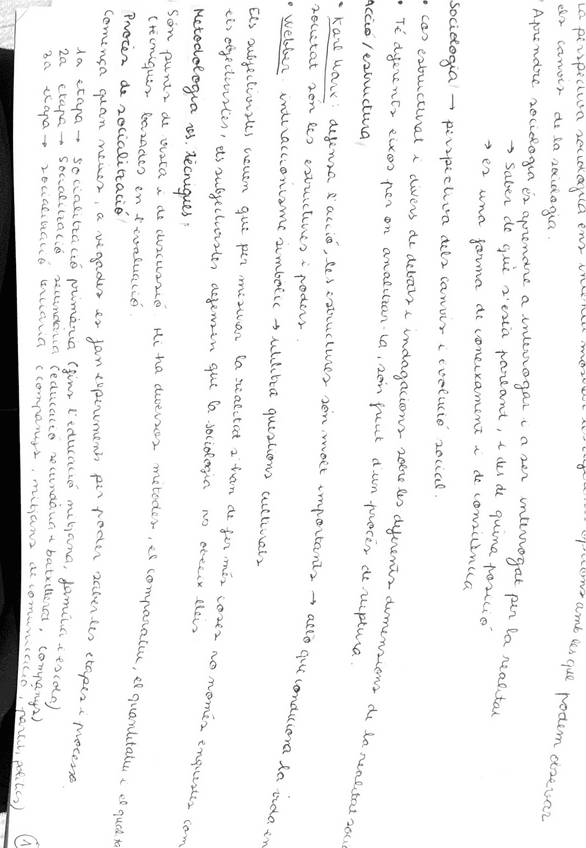 La perspectiva sociològica ens opcions amb les que podem observar
els canvis de la sociologia.
Aprendre sociologia és aprendre a interrogar i a ser interrogat per la realitat
→ Saber de què s'està parlant, i des de quina posició
→ és una forma de coneixement i de consciència
Sociologia → perspectiva dels canvis i evolució social.
• Cos estructural i divers de debats i indagacions sobre les diferents dimensions de la realitat soci
• Té diferents eixos per on analitzar-la, són fruit d'un procés de ruptura.
Acció / estructura,
• Karl Marx: defensa l'acció, les estructures són molt importants → allò que condiciona la vida en
societat són les estructures i poders.
• Webber: interaccionisme simbòlic → utilitza qüestions culturals
Els subjectivistes veuen que per mesurar la realitat s'han de fer més coses no només enquestes com
els objectivistes, els subjectivistes defensen que la sociologia no obeeix lleis
Metodologia vs. tècniques,
Són punts de vista i de discussió. Hi ha diversos mètodes, el comparatiu, el quantitatiu i el
(tècniques basades en l'evaluació.
Procés de socialització,
Comença quan neixes, a vegades es fan experiments per poder saber les etapes i processos.
1a etapa → Socialització primària (fins l'educació mitjana, família i escola)
2a etapa → Socialització secundària (educació secundària i batxillerat, companys)
3a etapa → socialització terciària (companys, mitjans de comunicació, partits polítics)
1